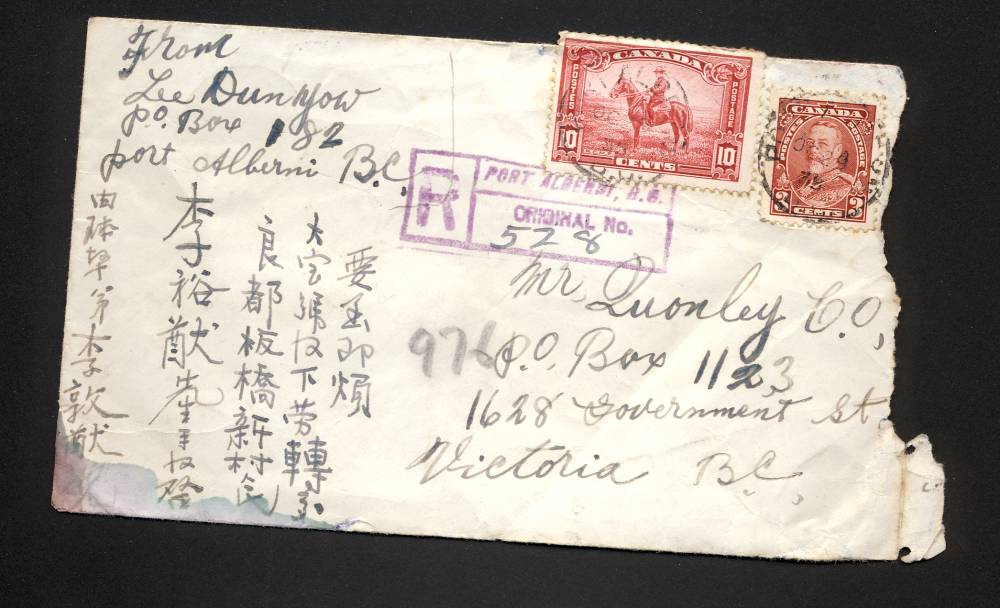 From
Lee Dunyow
P.O. Box 182
port Alberni B.C.
CANADA
POSTES POSTAGE
10 10
CENTS
CANADA
POSTES POSTAGE
3 CENTS 3
R
PORT ALBERNI, B.C.
ORIGINAL No.
528
Mr. Quonley Co,
P.O. Box 1123
1628 Government St
Victoria B.C.
976
要函即煩
大宝號收下勞轉
良都板橋新村
李裕猷先生手收啓
李敦猷